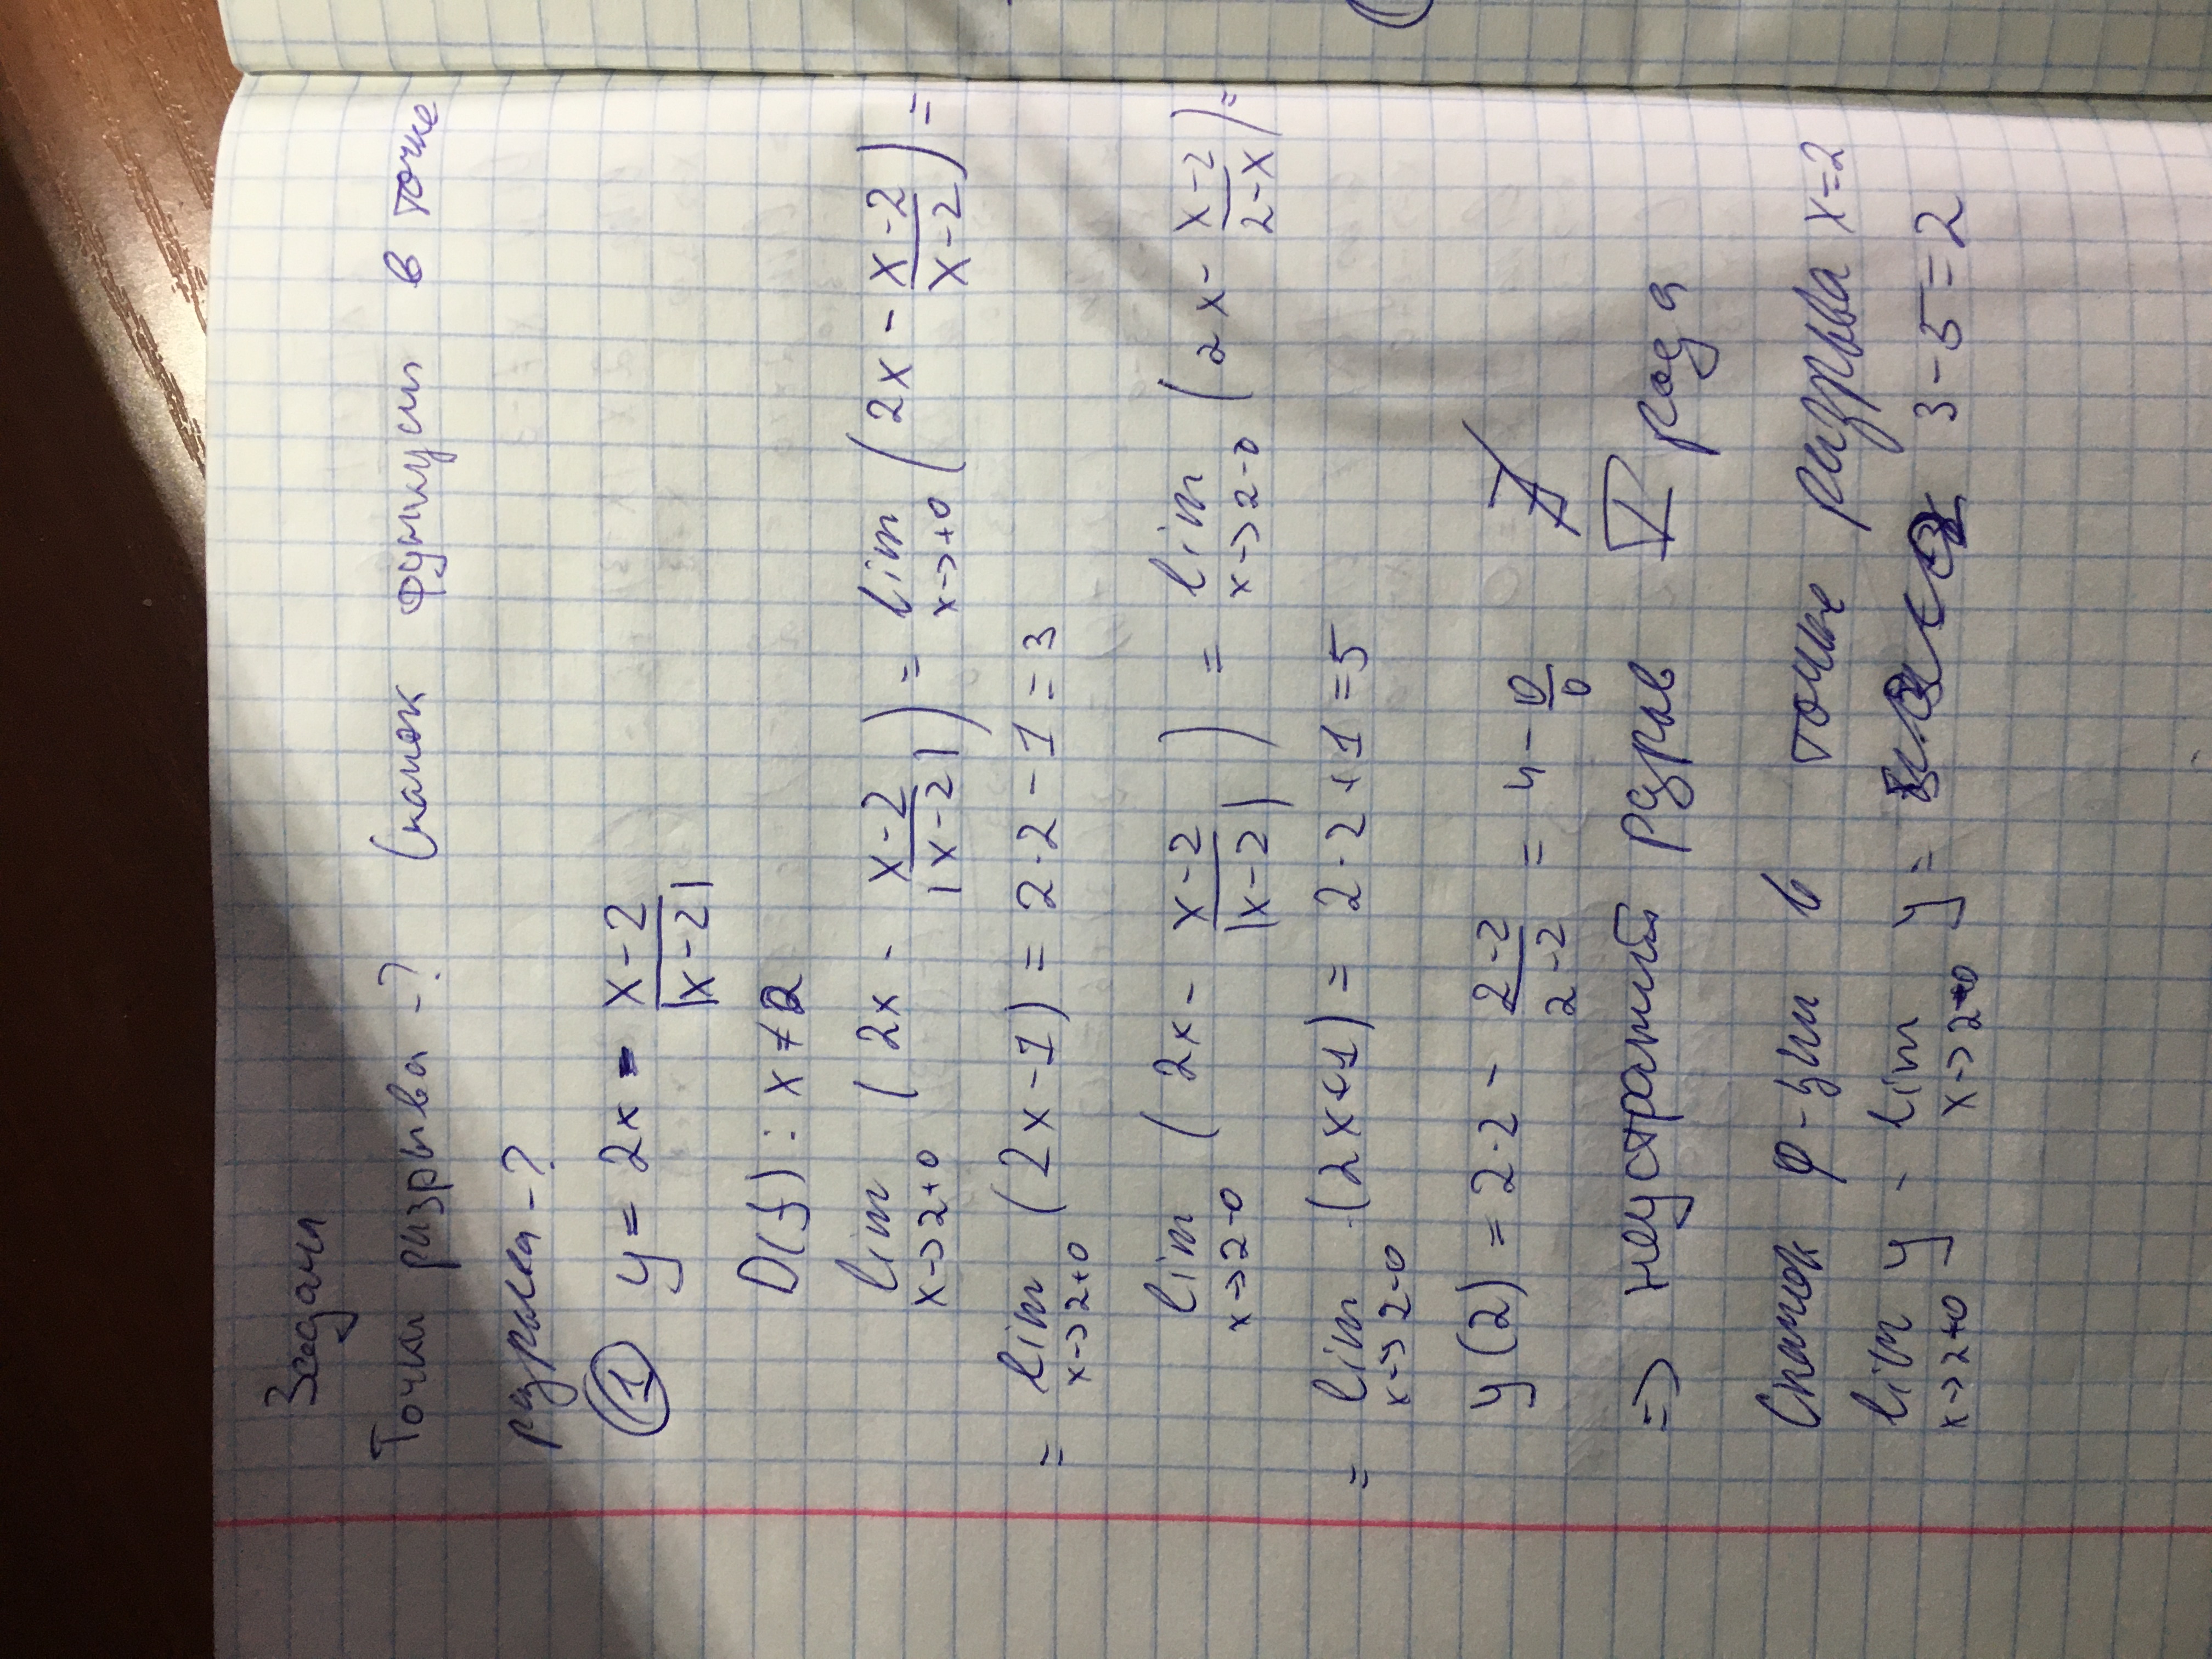 Задачи
Точки разрыва -? Скачок функции в точке
разрыва -?
① y = 2x - (x-2)/|x-2|
D(f): x ≠ 2
lim x→2+0 (2x - (x-2)/|x-2|) = lim x→+0 (2x - (x-2)/(x-2)) =
= lim x→2+0 (2x-1) = 2·2-1 = 3
lim x→2-0 (2x - (x-2)/|x-2|) = lim x→2-0 (2x - (x-2)/(2-x)) =
= lim x→2-0 (2x+1) = 2·2+1 = 5
y(2) = 2·2 - (2-2)/(2-2) = 4 - 0/0 ∄
=> неустранимый разрыв I рода
Скачок ф-ции в точке разрыва x=2
lim x→2+0 y - lim x→2-0 y = 3-5=2